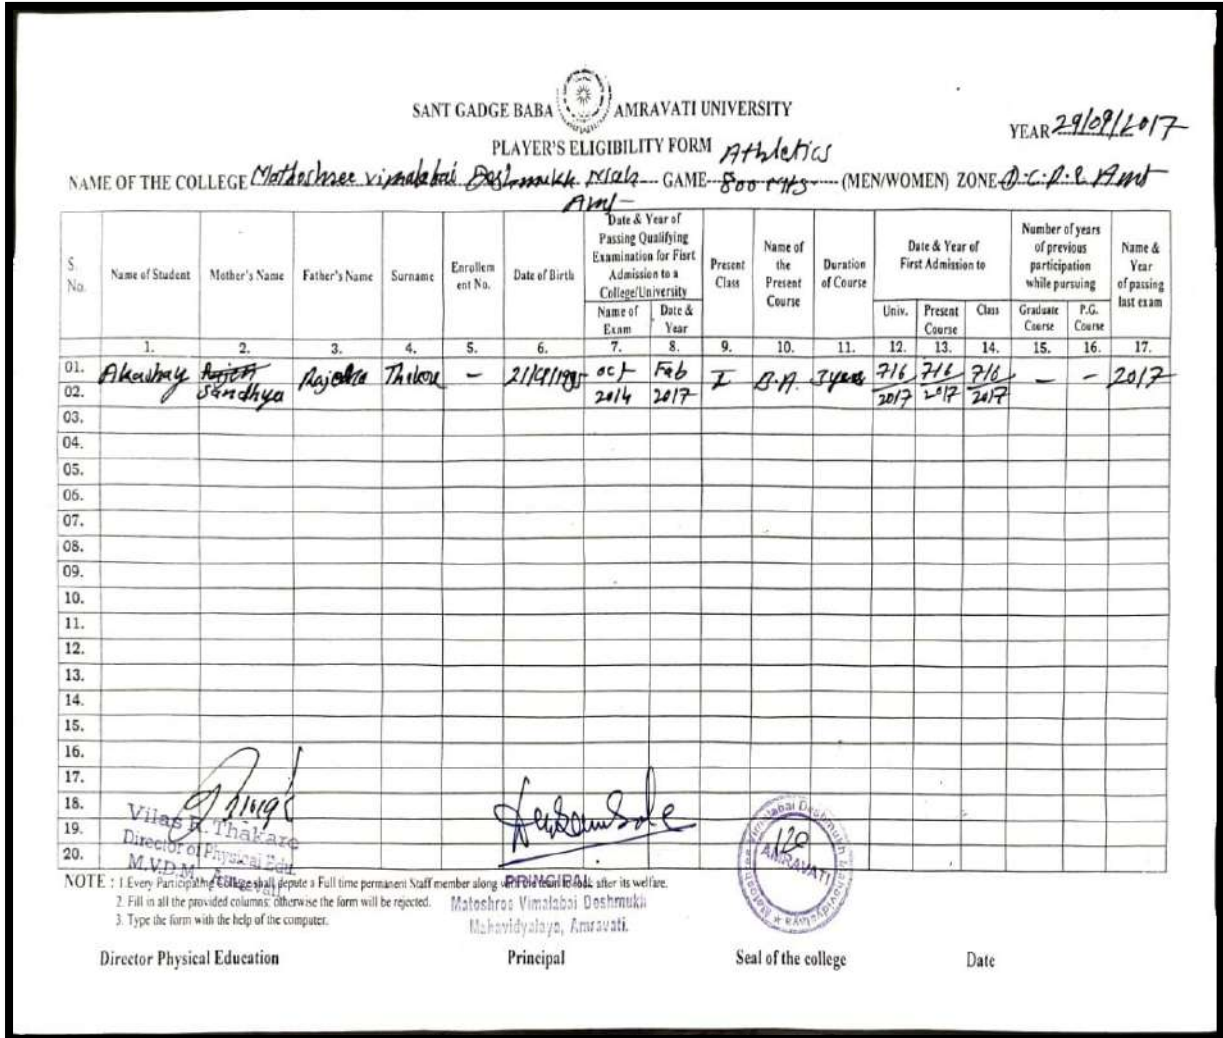 SANT GADGE BABA AMRAVATI UNIVERSITY
YEAR 29/09/2017
PLAYER'S ELIGIBILITY FORM Athletics
NAME OF THE COLLEGE Matoshree vimalabai Deshmukh Mah GAME 800 Mts (MEN/WOMEN) ZONE D.C.P.E Amt
Amt
S. No. Name of Student Mother's Name Father's Name Surname Enrollem ent No. Date of Birth Date & Year of Passing Qualifying Examination for Fisrt Admission to a College/University Present Class Name of the Present Course Duration of Course Date & Year of First Admission to Number of years of previous participation while pursuing Name & Year of passing last exam
Name of Exam Date & Year Univ. Present Course Class Graduate Course P.G. Course
1. 2. 3. 4. 5. 6. 7. 8. 9. 10. 11. 12. 13. 14. 15. 16. 17.
01. Akashay Thikore - oct Feb I B.A. 3 years 7/6 7/6 7/6 - - 2017
02. Sandhya 2014 2017 2017 2017 2017
03.
04.
05.
06.
07.
08.
09.
10.
11.
12.
13.
14.
15.
16.
17.
18.
19.
20.
Vilas R. Thakare
Director of Physical Edu.
M.V.D.M. Amravati
PRINCIPAL
Matoshree Vimalabai Deshmukh
Mahavidyalaya, Amravati.
Matoshree Vimalabai Deshmukh Mahavidyalaya
120
AMRAVATI
NOTE : 1.Every Participating College shall depute a Full time permanent Staff member along with the team to look after its welfare.
2. Fill in all the provided columns; otherwise the form will be rejected.
3. Type the form with the help of the computer.
Director Physical Education Principal Seal of the college Date